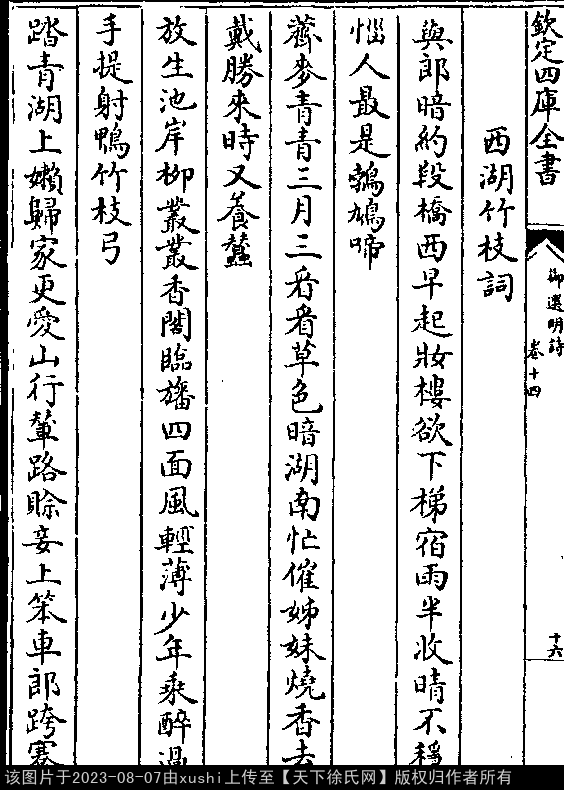 欽定四庫全書
御選明詩
卷十四
十六
西湖竹枝詞
與郎暗約段橋西早起妝樓欲下梯宿雨半收晴不穩
惱人最是鵓鳩啼
薺麥青青三月三看看草色暗湖南忙催姊妹燒香去
戴勝來時又養蠶
放生池岸柳叢叢香閣臨旛四面風輕薄少年乘醉過
手提射鴨竹枝弓
踏青湖上嬾歸家更愛山行輦路賒妾上笨車郎跨蹇
该图片于2023-08-07由xushi上传至【天下徐氏网】版权归作者所有